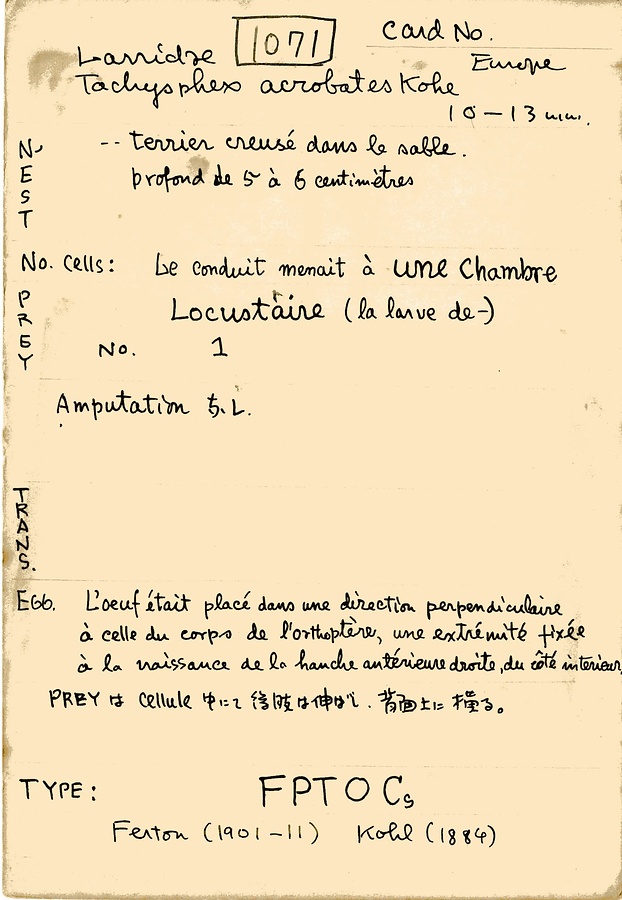 Card No.
1071
Larridae
Europe
Tachysphex acrobates Kohe
10-13 mm.
NEST
-- terrier creusé dans le sable.
profond de 5 à 6 centimètres
No. cells: Le conduit menait à une Chambre
PREY
Locustaire (la larve de-)
No. 1
Amputation ナシ.
TRANS.
EGG. L'oeuf était placé dans une direction perpendiculaire
à celle du corps de l'orthoptère, une extrémité fixée
à la naissance de la hanche antérieure droite, du côté interieur,
PREY は cellule 中にて後肢は伸ばし. 背面上に横る。
TYPE: FPTOCs
Ferton (1901-11) Kohl (1884)